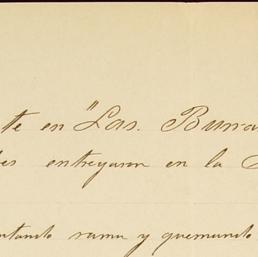 te en "Las. Burra
es entregaron en la
ntando rama y quemando